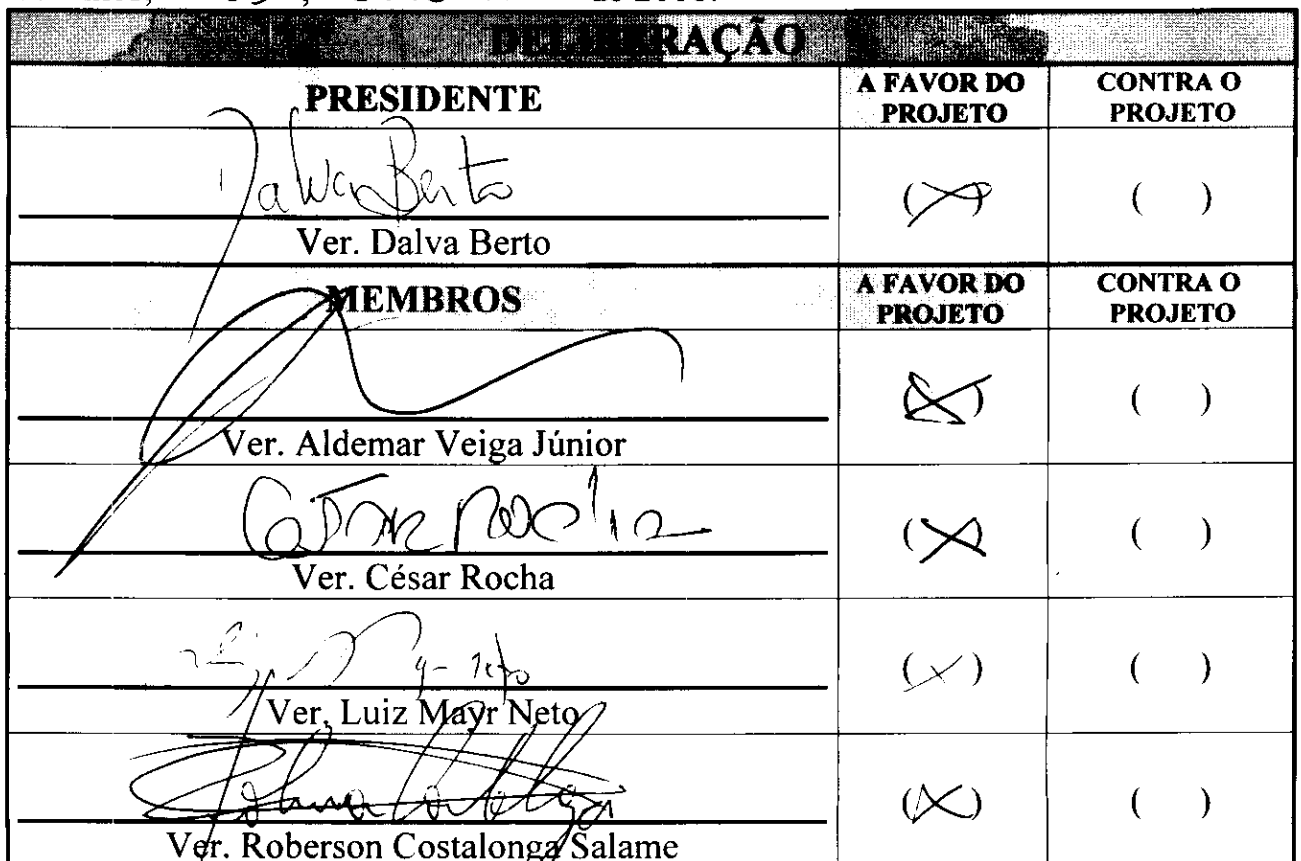 DELIBERAÇÃO
PRESIDENTE
A FAVOR DO PROJETO
CONTRA O PROJETO
Dalva Berto
(X) ( )
Ver. Dalva Berto
MEMBROS
A FAVOR DO PROJETO
CONTRA O PROJETO
(X) ( )
Ver. Aldemar Veiga Júnior
César Rocha
(X) ( )
Ver. César Rocha
(X) ( )
Ver. Luiz Mayr Neto
(X) ( )
Ver. Roberson Costalonga Salame